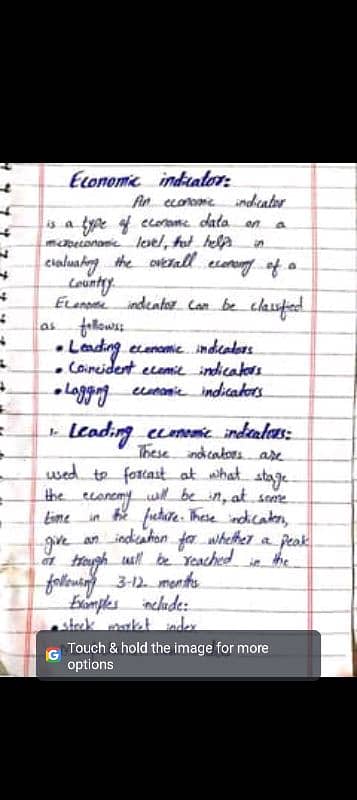 Economic indicator:
An economic indicator
is a type of economic data on a
macroeconomic level, that helps in
evaluating the overall economy of a
Country.
Economic indicator can be classified
as follows:
• Leading economic indicators
• Coincident ecomic indicators
• Lagging economic indicators
1- Leading economic indicators:
These indicators are
used to forcast at what stage
the economy will be in, at some
time in the future. These indicators,
give an indication for whether a peak
or trough will be reached in the
following 3-12 months.
Examples include:
• stock market index
G Touch & hold the image for more
options